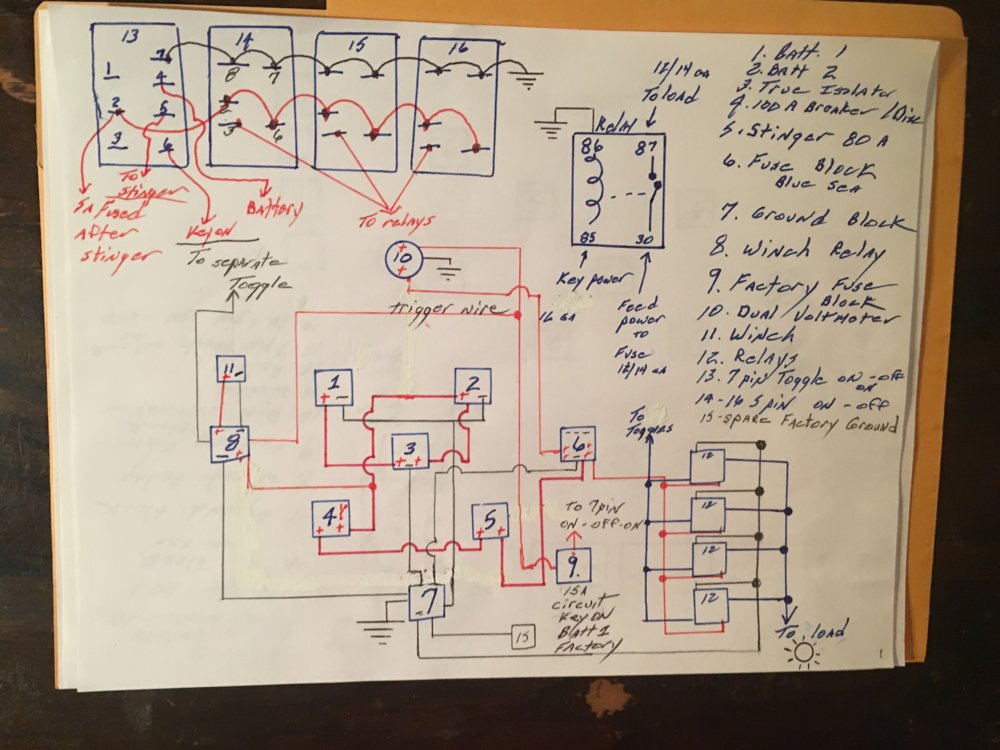 13
14
15
16
7
1
4
2
5
3
6
8
7
3
6
To
Stinger
5A Fused
After
Stinger
Key on
To separate
Toggle
Battery
To relays
12/14 GA
To load
Relay
86
87
85
30
Key power
Feed
power
to
Fuse
12/14 GA
1. Batt. 1
2. Batt 2
3. True Isolator
4. 100 A Breaker / Disc
5. Stinger 80 A
6. Fuse Block
Blue Sea
7. Ground Block
8. Winch Relay
9. Factory Fuse
Block
10. Dual Voltmeter
11. Winch
12. Relays
13. 7 pin Toggle on-off
on
14-16 5 pin on-off
15-spare Factory Ground
10
+
+
trigger wire
16 GA
11
+ -
1
+ -
2
+ -
8
- +
3
+ - +
6
4
+ +
5
+ +
7
-
15
To 7pin
on-off-on
9.
15A
circuit
Key ON
Batt 1
Factory
To
Toggles
12
12
12
12
To load
1